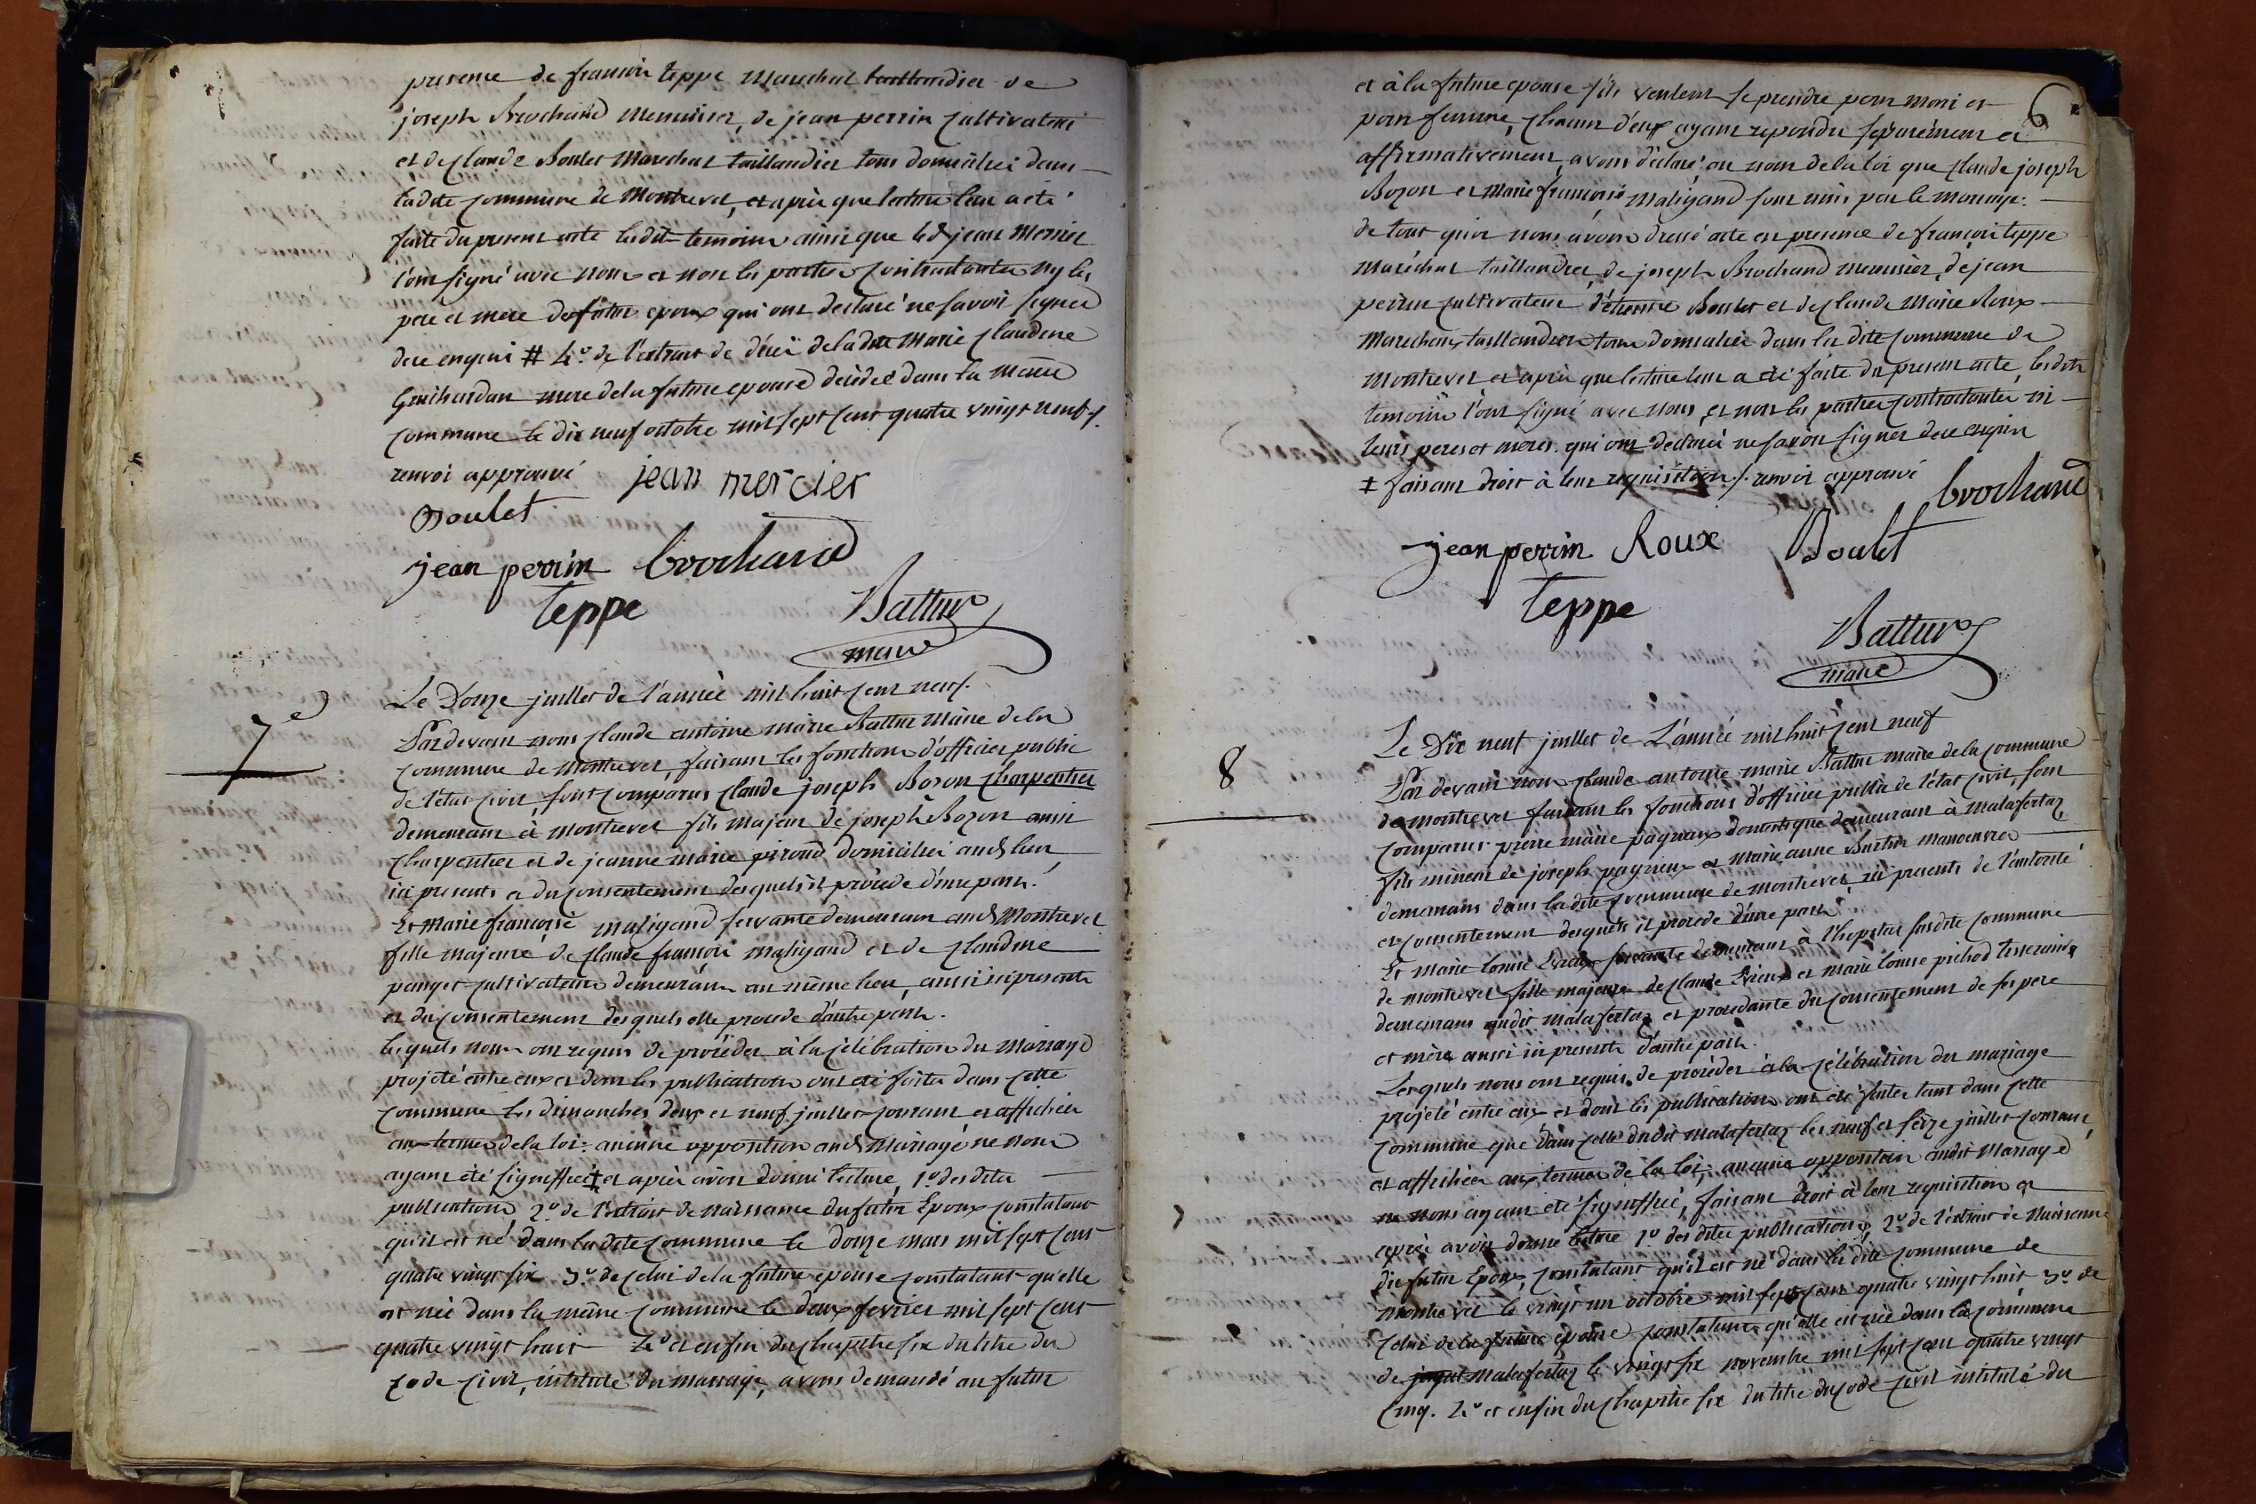 presence de françois teppe marechal taillandier de
joseph Brochand menuisier, de jean perrin cultivateur
et de claude Boulet marechal taillandier tous domiciliés dans
ladite commune de Montrevel, et après que lecture leur a eté
faite du present acte lesdits temoins ainsi que led jean Mercier
l'ont signé avec nous et non les parties contractantes ny les
pere et mere des futur epoux qui ont declaré ne savoir signer
de ce enquis # 4º de l'extrait de décès de ladite Marie claudine
Guichardan mere de la future epouse décédée dans la même
commune le dix neuf octobre mil sept cent quatre vingt neuf ./.
renvoi approuvé jean mercier
Boulet
jean perrin brochand
teppe Battur
maire
7e
Le Douze juillet de l'année mil huit cent neuf.
Par devant nous claude antoine marie Battur Maire de la
commune de Montrevel, faisant les fonctions d'officier public
de l'état civil, sont comparus claude joseph Bozon charpentier
demeurant à montrevel fils majeur de joseph Bozon aussi
charpentier et de jeanne marie piroud domiciliés aud lieu
ici presents et du consentement desquels il procede d'une part.
Et Marie françoise maligand servante demeurant aud Montrevel
fille majeure de claude françois maligand et de claudine
panget cultivateurs demeurants au même lieu, aussi ici presents
et du consentement desquels elle procede d'autre part.
lesquels nous ont requis de procéder à la célébration du Mariage
projeté entre eux et dont les publications ont eté faites dans cette
commune les dimanches deux et neuf juillet courant et affichées
aux termes de la loi: aucune opposition aud Mariage ne nous
ayant été signiffiée ‡ et après avoir donné lecture, 1º desdites
publications 2º de l'extrait de naissance du futur Epoux constatant
qu'il est né dans ladite commune le douze mars mil sept cent
quatre vingt six 3º de celui de la future epouse constatant qu'elle
est née dans la même commune le deux fevrier mil sept cent
quatre vingt huit 4º et enfin du chapitre six du titre du
code civil, intitulé du mariage, avons demandé au futur
6
et à la future epouse s'ils veulent se prendre pour mari et
pour femme, chacun d'eux ayant repondu séparément et
affirmativement, avons déclaré au nom de la loi que claude joseph
Bozon et Marie françoise maligand sont unis par le mariage.
de tout quoi nous avons dressé acte en presence de françois teppe
maréchal taillandier, de joseph Brochand menuisier, de jean
perrin cultivateur d'étienne Boulet et de claude Marie Roux
marechaux taillandiers tous domiciliés dans ladite commune de
montrevel et après que lecture leur a été faite du present acte, lesdits
temoins l'ont signé avec nous et non les parties contractantes ni
leurs peres et meres qui ont declaré ne savoir signer de ce enquis
‡ faisant droit à leur requisition ./. renvoi approuvé
brochand
jean perrin Roux Boulet
teppe
Battur
maire
8
Le Dix neuf juillet de L'année mil huit cent neuf
Par devant nous claude antoine marie Battur maire de la commune
de montrevel faisant les fonctions d'officier public de l'état civil, sont
comparus pierre marie pagneux domestique demeurant à malafertaz
fils mineur de joseph pagneux et Marie anne Burtin manoeuvres
demeurans dans ladite commune de montrevel, ici presents de l'autorité
et consentement desquels il procede d'une part
Et marie louise Evieux servante demeurant à l'hopital susdite commune
de montrevel fille majeure de claude Evieux et marie louise pichod tisserands
demeurans audit malafertaz et procedante du consentement de ses pere
et mère aussi ici presents d'autre part.
Lesquels nous ont requis de procéder à la célébration du mariage
projeté entre eux et dont les publications ont été faites tant dans cette
commune que dans celle dudit malafertaz les neuf et seize juillet courant,
et affichées aux termes de la loi; aucune opposition audit Mariage
ne nous ayant eté signiffiée, faisant droit à leur requisition et
après avoir donné lecture 1º desdites publications, 2º de l'extrait de Naissance
du futur Epoux, constatant qu'il est né dans ladite commune de
montrevel le vingt un octobre mil sept cent quatre vingt huit 3º de
celui de la future epouse constatant qu'elle est née dans la commune
de malafertaz le vingt six novembre mil sept cent quatre vingt
cinq. 4º et enfin du chapitre six du titre du code civil intitulé du